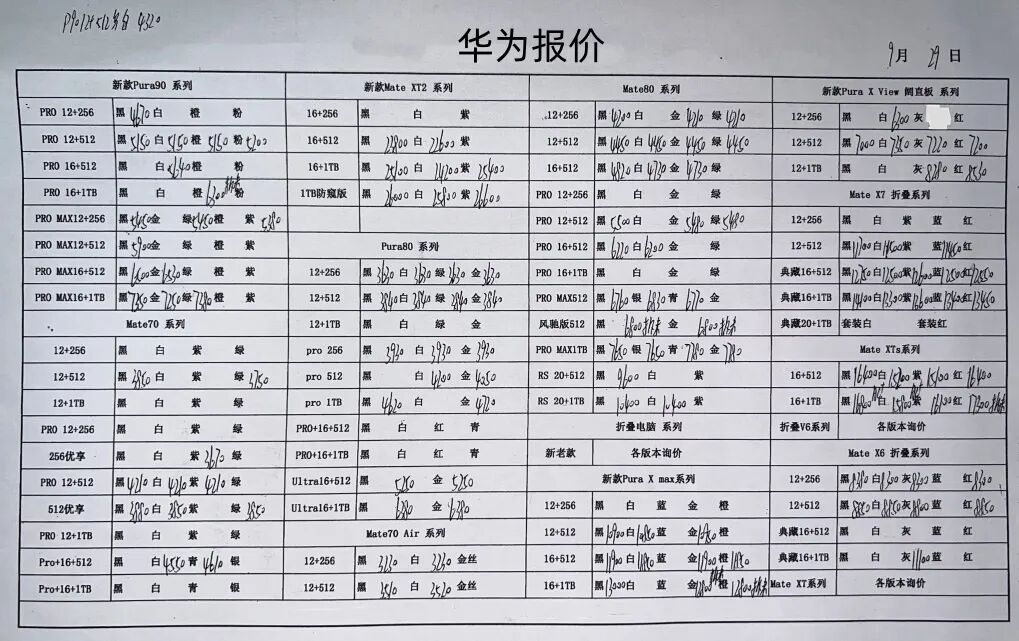 华为报价
9月 29 日
新款Pura90 系列
PRO 12+256 黑 4670 白 橙 粉
PRO 12+512 黑 5150 白 5150 橙 5150 粉 5200
PRO 16+512 黑 白 橙 粉
PRO 16+1TB 黑 白 橙 粉
PRO MAX12+256 黑 5450 金 绿 5450 橙 紫 5380
PRO MAX12+512 黑 5900 金 绿 橙 紫
PRO MAX16+512 黑 金 6530 绿 橙 紫
PRO MAX16+1TB 黑 7250 金 7250 绿 7380 橙 紫
Mate70 系列
12+256 黑 白 紫 绿
12+512 黑 3850 白 紫 绿 3750
12+1TB 黑 白 紫 绿
PRO 12+256 黑 白 紫 绿
256优享 黑 白 紫 3670 绿
PRO 12+512 黑 4210 白 4210 紫 4210 绿
512优享 黑 3850 白 3850 紫 绿 3850
PRO 12+1TB 黑 白 紫 绿
Pro+16+512 黑 白 4550 青 4610 银
Pro+16+1TB 黑 白 青 银
新款Mate XT2 系列
16+256 黑 白 紫
16+512 黑 22800 白 22600 紫
16+1TB 黑 25100 白 24200 紫 25400
1TB防窥版 黑 26000 白 25800 紫 26600
Pura80 系列
12+256 黑 3630 白 3630 绿 3630 金 3630
12+512 黑 3840 白 3840 绿 3840 金 3840
12+1TB 黑 白 绿 金
pro 256 黑 3930 白 3930 金 3930
pro 512 黑 白 4200 金 4050
pro 1TB 黑 4620 白 金 4720
PRO+16+512 黑 白 红 青
PRO+16+1TB 黑 白 红 青
Ultra16+512 黑 5250 金 5250
Ultra16+1TB 黑 6380 金 6380
Mate70 Air 系列
12+256 黑 3230 白 3230 金丝
12+512 黑 3510 白 3520 金丝
Mate80 系列
12+256 黑 4200 白 金 4210 绿 4210
12+512 黑 4450 白 4450 金 4450 绿 4450
16+512 黑 4820 白 4720 金 4720 绿
PRO 12+256 黑 白 金 绿
PRO 12+512 黑 5500 白 金 5480 绿 5480
PRO 16+512 黑 6220 白 6200 金 绿
PRO 16+1TB 黑 白 金 绿
PRO MAX512 黑 6760 银 6830 青 6770 金
风驰版512 黑 6800 金 6800
PRO MAX1TB 黑 7650 银 7650 青 7780 金 7780
RS 20+512 黑 9600 白 紫
RS 20+1TB 黑 10400 白 10400 紫
折叠电脑 系列
新老款 各版本询价
新款Pura X max系列
12+256 黑 白 蓝 金 橙
12+512 黑 10900 白 10850 蓝 金 10750 橙
16+512 黑 11900 白 11850 蓝 金 11900 橙 11850
16+1TB 黑 13000 白 蓝 金 12800 橙 12800
新款Pura X View 阔直板 系列
12+256 黑 白 6300 灰 红
12+512 黑 7000 白 7250 灰 7220 红 7200
12+1TB 黑 白 灰 8280 红 8530
Mate X7 折叠系列
12+256 黑 白 紫 蓝 红
12+512 黑 11700 白 11500 紫 蓝 11450 红
典藏16+512 黑 12750 白 12500 紫 12600 蓝 12500 红 12550
典藏16+1TB 黑 14400 白 13300 紫 13600 蓝 13400 红 13450
典藏20+1TB 套装白 套装红
Mate XTs系列
16+512 黑 16400 白 15200 紫 15100 红 16400
16+1TB 黑 16800 白 15800 紫 16100 红 17300
折叠V6系列 各版本询价
Mate X6 折叠系列
12+256 黑 8380 白 8300 灰 8300 蓝 红 8300
12+512 黑 8850 白 8850 灰 8800 蓝 红 8850
典藏16+512 黑 白 灰 蓝 红
典藏16+1TB 黑 白 灰 11100 蓝 红
Mate XT系列 各版本询价